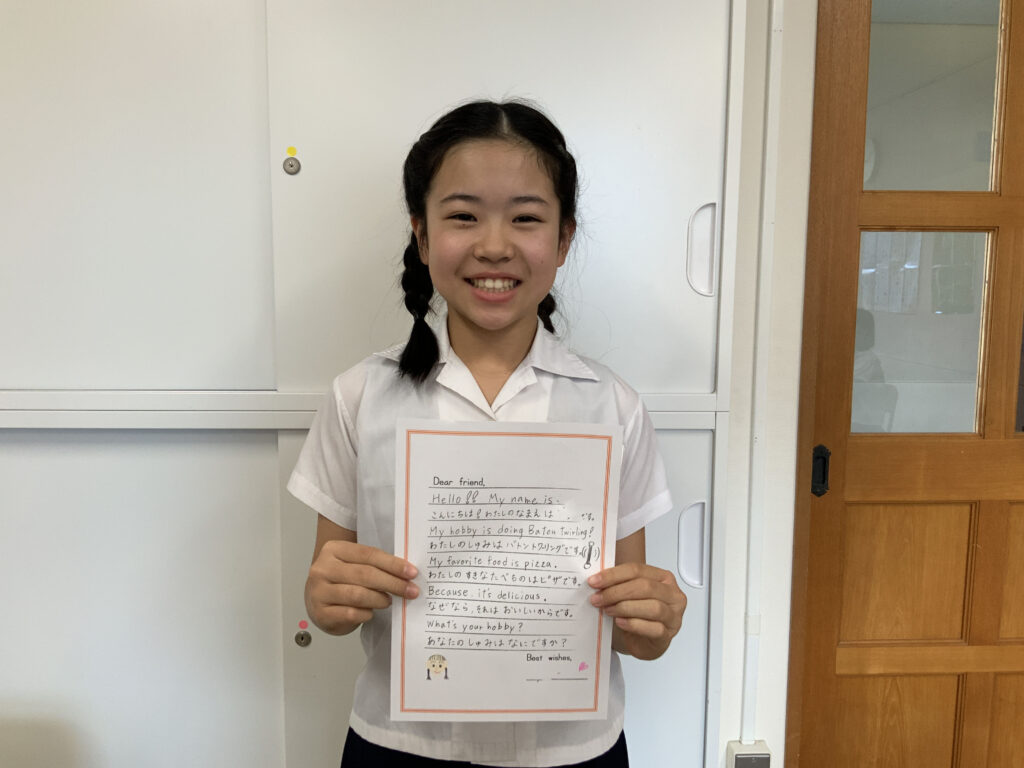 Dear friend,
Hello!! My name is
こんにちは!わたしのなまえは です。
My hobby is doing Baton twirling!
わたしのしゅみはバトントワリングです。
My favorite food is pizza.
わたしのすきなたべものはピザです。
Because, it's delicious.
なぜなら、それはおいしいからです。
What's your hobby?
あなたのしゅみはなにですか?
Best wishes,